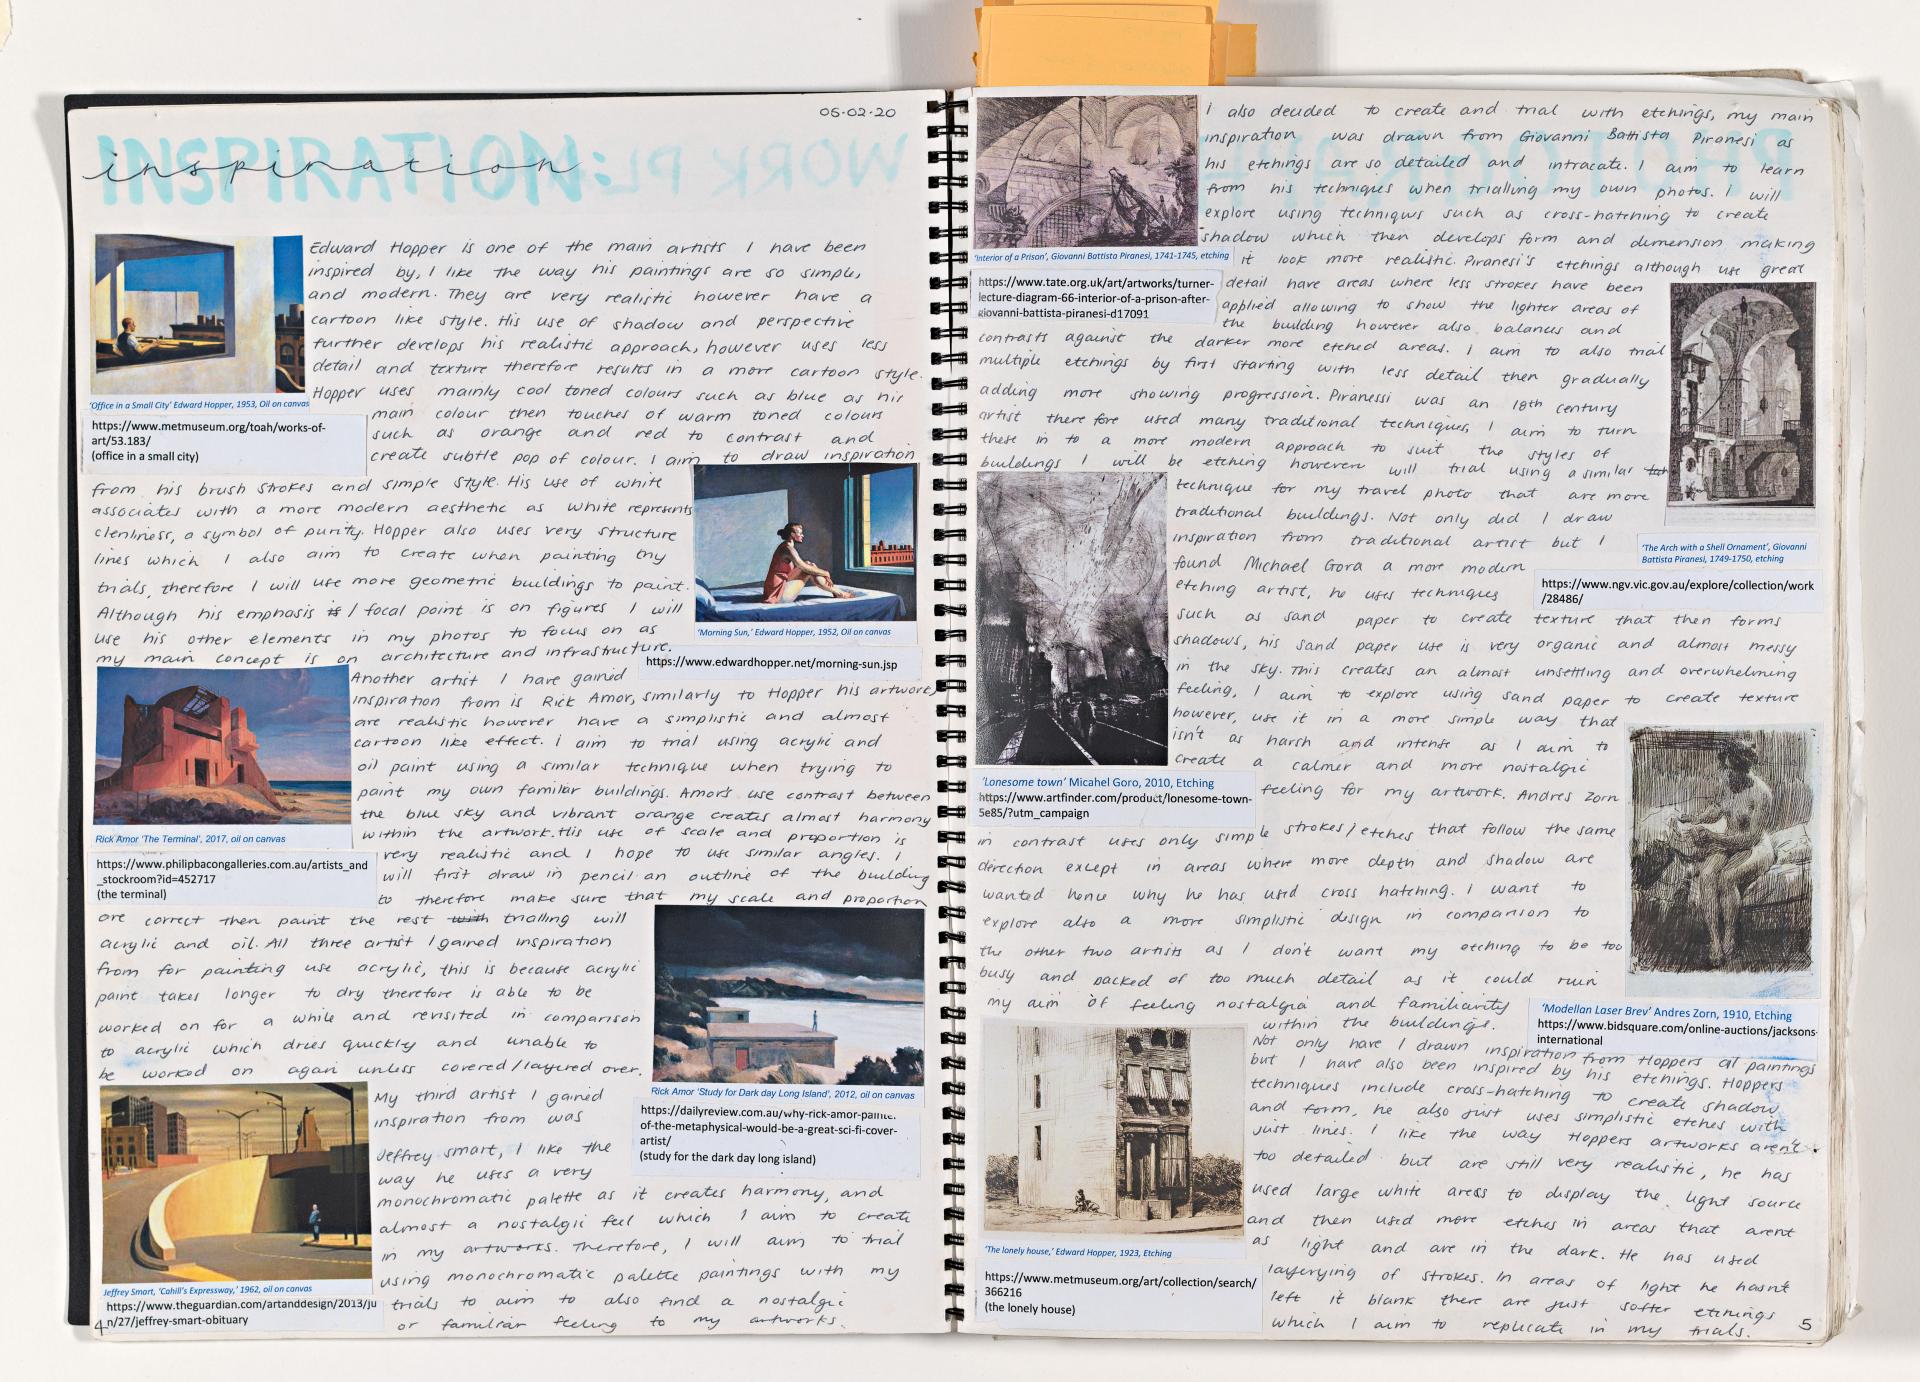 06-02-20
INSPIRATION:
inspiration
Edward Hopper is one of the main artists I have been
inspired by, I like the way his paintings are so simple,
and modern. They are very realistic however have a
cartoon like style. His use of shadow and perspective
further develops his realistic approach, however uses less
detail and texture therefore results in a more cartoon style.
Hopper uses mainly cool toned colours such as blue as his
main colour then touches of warm toned colours
such as orange and red to contrast and
create subtle pop of colour. I aim to draw inspiration
'Office in a Small City' Edward Hopper, 1953, Oil on canvas
https://www.metmuseum.org/toah/works-of-
art/53.183/
(office in a small city)
from his brush strokes and simple style. His use of white
associates with a more modern aesthetic as white represents
clenliness, a symbol of purity. Hopper also uses very structure
lines which I also aim to create when painting my
trials, therefore I will use more geometric buildings to paint.
Although his emphasis is / focal point is on figures I will
use his other elements in my photos to focus on as
my main concept is on architecture and infrastructure.
'Morning Sun,' Edward Hopper, 1952, Oil on canvas
https://www.edwardhopper.net/morning-sun.jsp
Another artist I have gained
inspiration from is Rick Amor, similarly to Hopper his artwork
are realistic however have a simplistic and almost
cartoon like effect. I aim to trial using acrylic and
oil paint using a similar technique when trying to
paint my own familiar buildings. Amor's use contrast between
the blue sky and vibrant orange creates almost harmony
within the artwork. His use of scale and proportion is
very realistic and I hope to use similar angles. I
will first draw in pencil an outline of the building
to therefore make sure that my scale and proportion
Rick Amor 'The Terminal', 2017, oil on canvas
https://www.philipbacongalleries.com.au/artists_and
_stockroom?id=452717
(the terminal)
are correct then paint the rest with trialling will
acrylic and oil. All three artist I gained inspiration
from for painting use acrylic, this is because acrylic
paint takes longer to dry therefore is able to be
worked on for a while and revisited in comparison
to acrylic which dries quickly and unable to
be worked on again unless covered/layered over.
Rick Amor 'Study for Dark day Long Island', 2012, oil on canvas
https://dailyreview.com.au/why-rick-amor-painte.
of-the-metaphysical-would-be-a-great-sci-fi-cover-
artist/
(study for the dark day long island)
My third artist I gained
inspiration from was
Jeffrey smart, I like the
way he uses a very
monochromatic palette as it creates harmony, and
almost a nostalgic feel which I aim to create
in my artworks. Therefore, I will aim to trial
using monochromatic palette paintings with my
trials to aim to also find a nostalgic
or familiar feeling to my artworks.
Jeffrey Smart, 'Cahill's Expressway,' 1962, oil on canvas
https://www.theguardian.com/artanddesign/2013/ju
n/27/jeffrey-smart-obituary
4
I also decided to create and trial with etchings, my main
inspiration was drawn from Giovanni Battista Piranesi as
his etchings are so detailed and intracate. I aim to learn
from his techniques when trialling my own photos. I will
explore using techniques such as cross-hatching to create
shadow which then develops form and dimension making
it look more realistic. Piranesi's etchings although use great
detail have areas where less strokes have been
applied allowing to show the lighter areas of
the building however also balances and
contrasts against the darker more etched areas. I aim to also trial
multiple etchings by first starting with less detail then gradually
adding more showing progression. Piranessi was an 18th century
artist therefore used many traditional techniques, I aim to turn
these in to a more modern approach to suit the styles of
buildings I will be etching however will trial using a similar
technique for my travel photo that are more
traditional buildings. Not only did I draw
inspiration from traditional artist but I
found Michael Gora a more modern
etching artist, he uses techniques
such as sand paper to create texture that then forms
shadows, his sand paper use is very organic and almost messy
in the sky. This creates an almost unsettling and overwhelming
feeling, I aim to explore using sand paper to create texture
however, use it in a more simple way that
isn't as harsh and intense as I aim to
create a calmer and more nostalgic
feeling for my artwork. Andres Zorn
'Interior of a Prison', Giovanni Battista Piranesi, 1741-1745, etching
https://www.tate.org.uk/art/artworks/turner-
lecture-diagram-66-interior-of-a-prison-after-
giovanni-battista-piranesi-d17091
'The Arch with a Shell Ornament', Giovanni
Battista Piranesi, 1749-1750, etching
https://www.ngv.vic.gov.au/explore/collection/work
/28486/
'Lonesome town' Micahel Goro, 2010, Etching
https://www.artfinder.com/product/lonesome-town-
5e85/?utm_campaign
in contrast uses only simple strokes/etches that follow the same
direction except in areas where more depth and shadow are
wanted hence why he has used cross hatching. I want to
explore also a more simplistic design in comparison to
the other two artists as I don't want my etching to be too
busy and packed of too much detail as it could ruin
my aim of feeling nostalgia and familiarity
within the buildings.
'Modellan Laser Brev' Andres Zorn, 1910, Etching
https://www.bidsquare.com/online-auctions/jacksons-
international
Not only have I drawn inspiration from Hoppers oil paintings
but I have also been inspired by his etchings. Hoppers
techniques include cross-hatching to create shadow
and form, he also just uses simplistic etches with
just lines. I like the way Hoppers artworks aren't
too detailed but are still very realistic, he has
used large white areas to display the light source
and then used more etches in areas that arent
as light and are in the dark. He has used
layerying of strokes. In areas of light he hasn't
left it blank there are just softer etchings
which I aim to replicate in my trials.
'The lonely house,' Edward Hopper, 1923, Etching
https://www.metmuseum.org/art/collection/search/
366216
(the lonely house)
5